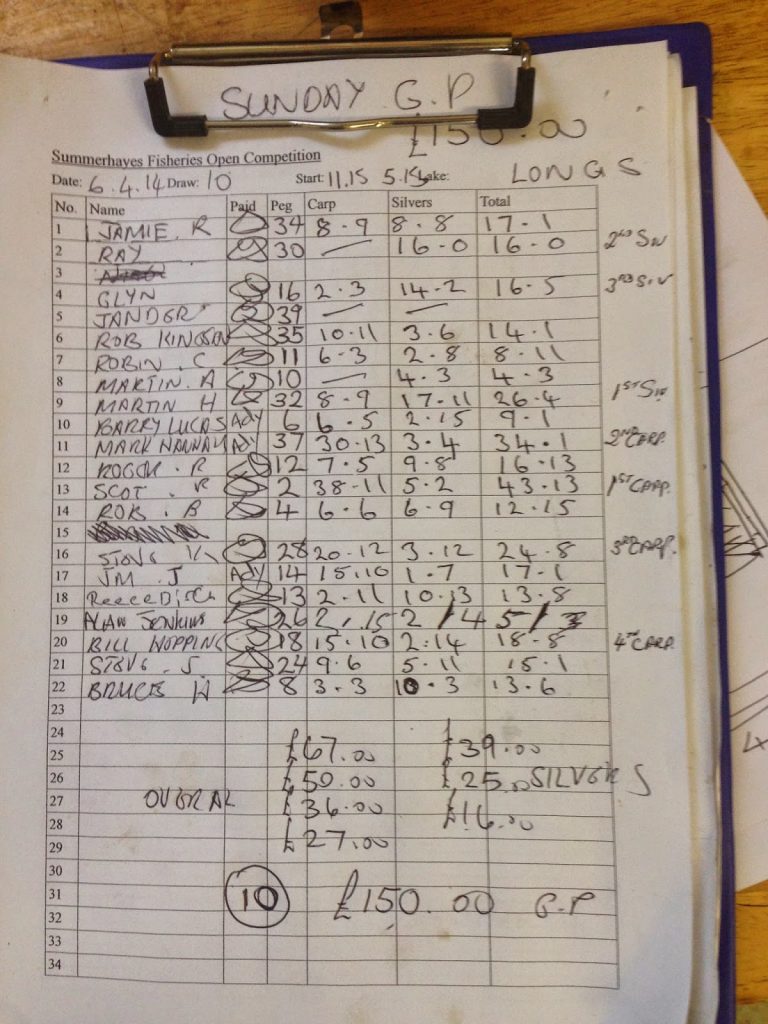 SUNDAY G.P
£150.00
Summerhayes Fisheries Open Competition
Date: 6.4.14 Draw: 10 Start: 11.15 5.15 Lake: LONGS
No. Name Paid Peg Carp Silvers Total
1 JAMIE. R 34 8-9 8-8 17-1
2 RAY 30 — 16-0 16-0 2ND SIV
3
4 GLYN 16 2-3 14-2 16-5 3RD SIV
5 JANDER 39 — —
6 ROB KINGSON 35 10-11 3-6 14-1
7 ROBIN. C 11 6-3 2-8 8-11
8 MARTIN. A 10 — 4-3 4-3
9 MARTIN H 32 8-9 17-11 26-4 1ST SIV
10 BARRY LUCAS Ady 6 6-5 2-15 9-1
11 MARK HANNAH Ady 37 30-13 3-4 34-1 2ND CARP.
12 ROGER. R 12 7-5 9-8 16-13
13 SCOT. R 2 38-11 5-2 43-13 1ST CARP.
14 ROB. B 4 6-6 6-9 12-15
15
16 28 20-12 3-12 24-8 3RD CARP.
17 JM. J Ady 14 15.10 1-7 17-1
18 13 2-11 10-13 13-8
19 ALAN JENKINS 26 2/15 2/4 5/3
20 BILL HOPPING 18 15-10 2-14 18-8 4TH CARP
21 STEVE. S. 24 9-6 5-11 15-1
22 BRUCE H 8 3-3 10-3 13-6
23
24
25 £67.00 £39.00
26 £50.00 £25.00 SILVERS
27 OVERAL £36.00 £16.00
28
29 £27.00
30
31 10 £150.00 G.P
32
33
34
4